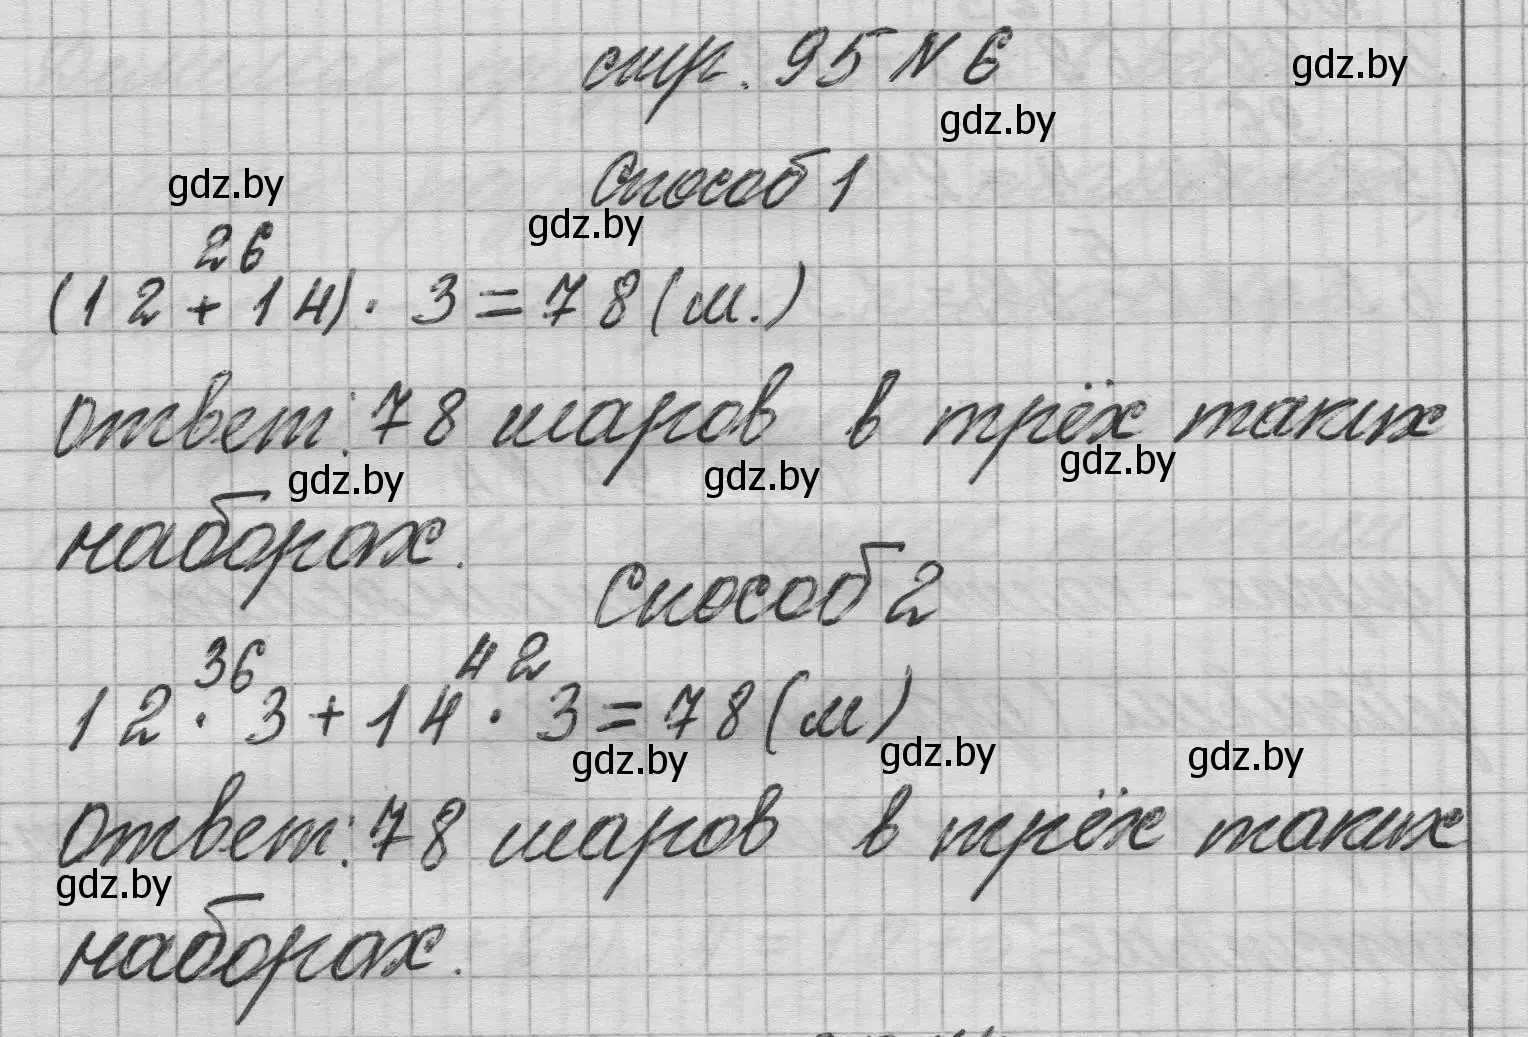 стр. 95 № 6
gdz.by
gdz.by
Способ 1
gdz.by
gdz.by
26
(12 + 14) · 3 = 78 (ш.)
ответ: 78 шаров в трёх таких
gdz.by
gdz.by
gdz.by
наборах.
Способ 2
36 42
12 · 3 + 14 · 3 = 78 (ш)
gdz.by
gdz.by
gdz.by
ответ: 78 шаров в трёх таких
gdz.by
наборах.